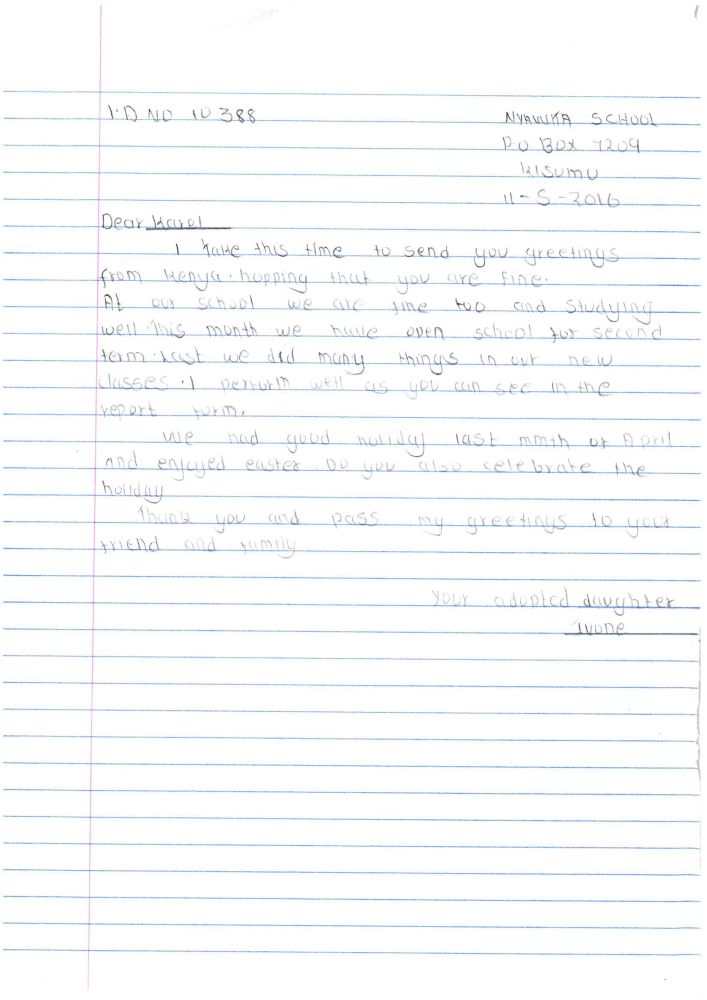 1
I.D NO 10388
NYAWITA SCHOOL
P.O BOX 7209
KISUMU
11-5-2016
Dear Karel
I take this time to send you greetings
from Kenya. hopping that you are fine.
At our school we are fine too and studying
well. This month we have open school for second
term. Last we did many things in our new
classes. I perform well as you can see in the
report form.
We had good holiday last mmth of April
and enjoyed easter. Do you also celebrate the
holiday
Thank you and pass my greetings to your
friend and family
Your adopted daughter
Ivone